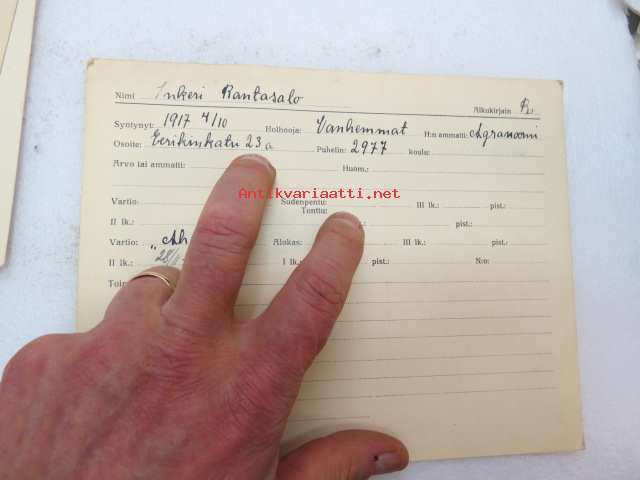 Nimi Inkeri Rantasalo Alkukirjain R.
Syntynyt: 1917 4/10 Holhooja: Vanhemmat H:n ammatti: Agronoomi
Osoite: Eerikinkatu 23 a Puhelin: 2977 koulu:
Arvo tai ammatti: Huom.:
Antikvariaatti.net
Vartio: Sudenpentu: III lk.: pist.:
Tonttu:
II lk.: pist.:
Vartio: Alokas: III lk.: pist.:
II lk.: I lk.: pist.: N:o: